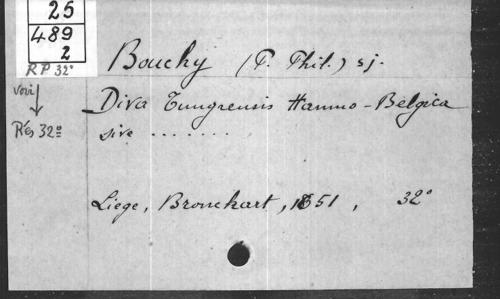 25
489
2
RP 32°
voir
Rés 32°
Bouchy (P. Phil.) sj.
Diva Tungrensis Hanno-Belgica
sive .......
Liege, Bronckart, 1651, 32°